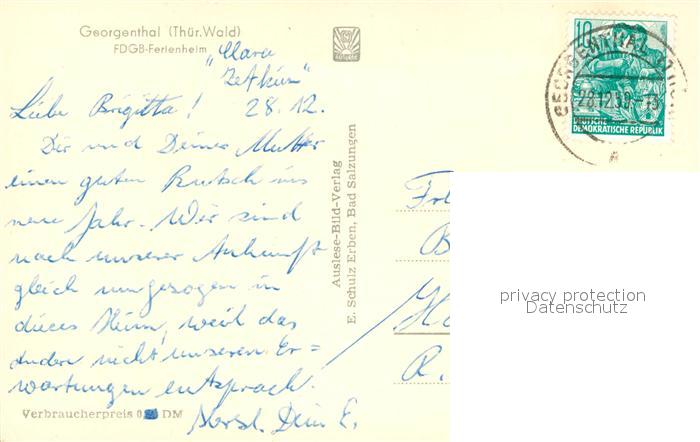 Georgenthal (Thür. Wald)
FDGB-Ferienheim
"Clara
Zetkin"
Liebe Brigitta! 28.12.
Dir und Deiner Mutter
einen guten Rutsch ins
neue Jahr. Wir sind
nach unserer Ankunft
gleich umgezogen in
dieses Heim, weil das
andere nicht unseren Er=
wartungen entsprach.
Herzl. Dein E.
Verbraucherpreis 0, DM
Auslese-Bild-Verlag
E. Schulz Erben, Bad Salzungen
10
DEUTSCHE
DEMOKRATISCHE REPUBLIK
28.12.59
B
R.
privacy protection
Datenschutz